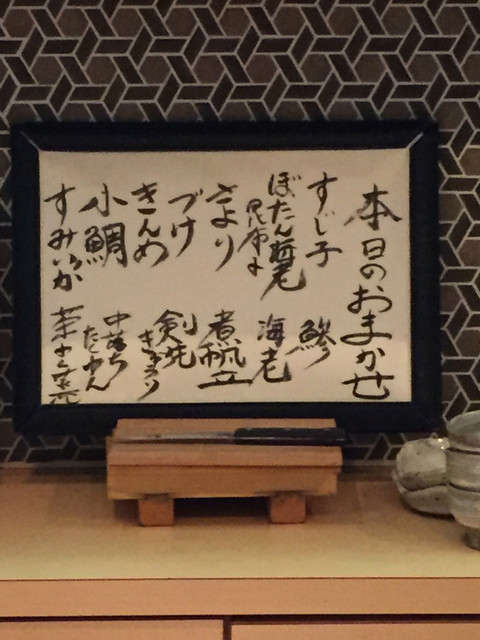 本日のおまかせ
すじ子
ぼたん海老
昆布〆
さより
づけ
きんめ
小鯛
すみいか
鯵
海老
煮帆立
剣先
きゅうり
中落ち
たくわん